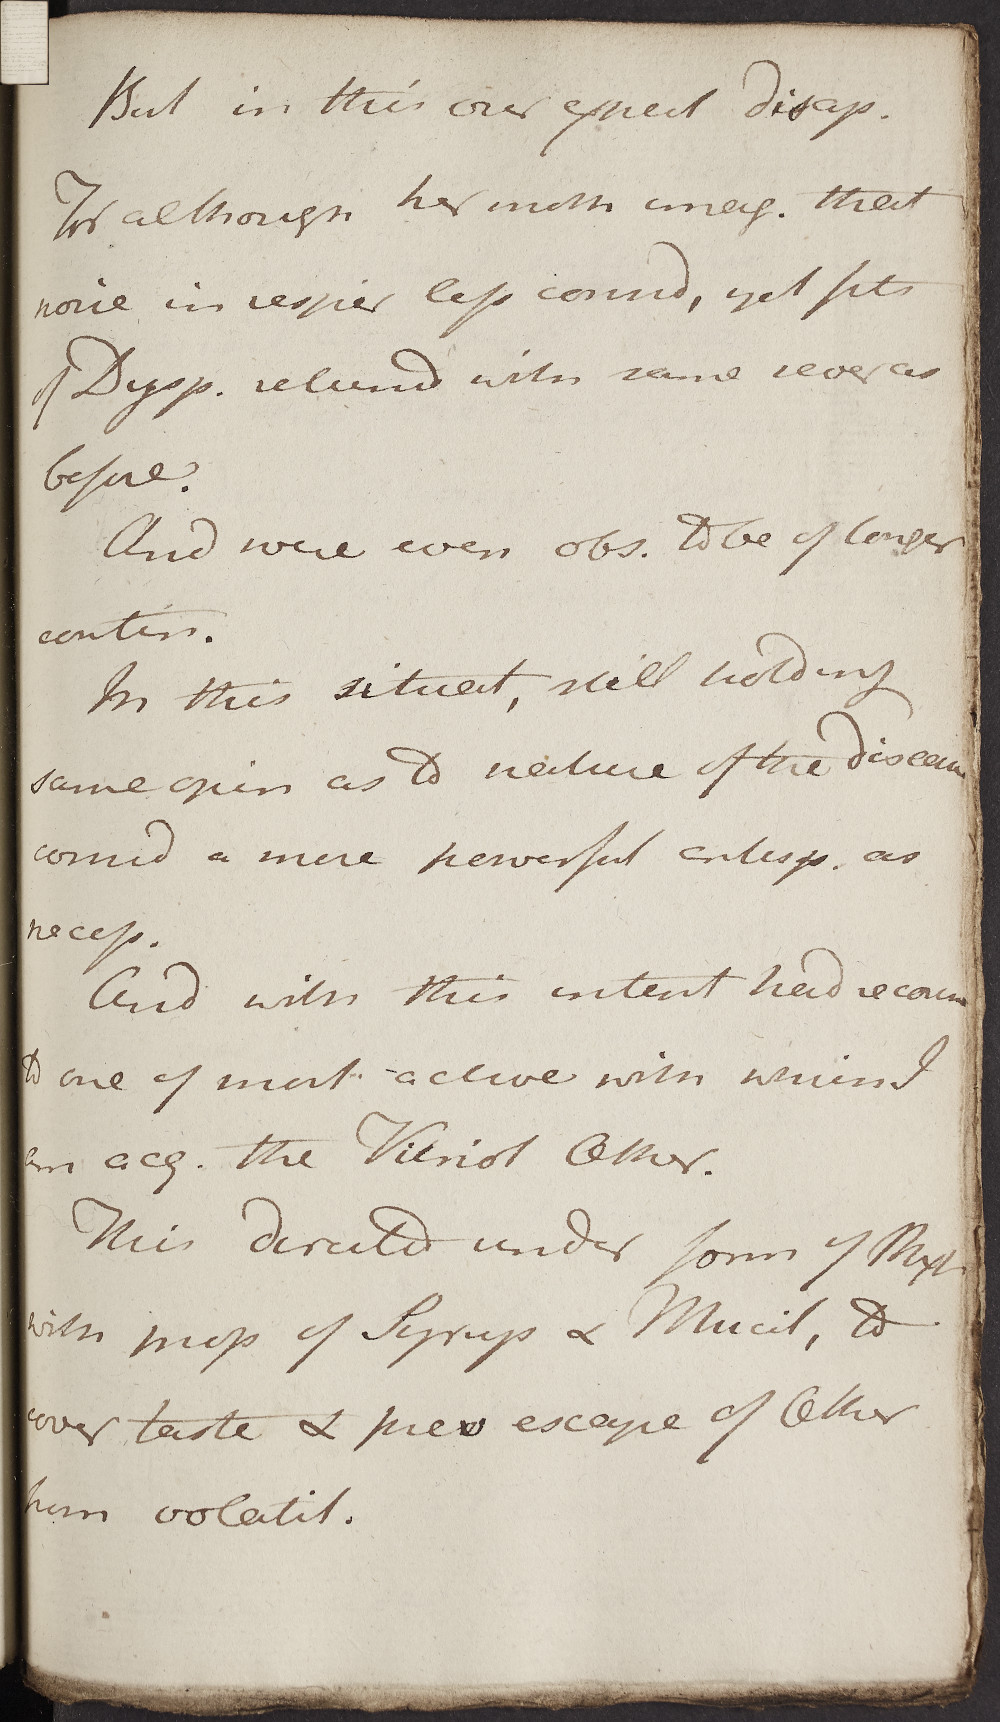 But in this our expect disap.
For although her moth imag. that
noise in respir less consid, yet fits
of Dysp. returnd with same sever as
before.
And were even obs. to be of longer
contin.
In this situat, still holding
same opin as to nature of the disease
consid a more powerful antisp. as
necess.
And with this intent had recourse
to one of most active with which I
am acq. the Vitriol Æther.
This directed under form of Mixt
with prop of Syrup & Mucil, to
cover taste & prev escape of Æther
from volatil.